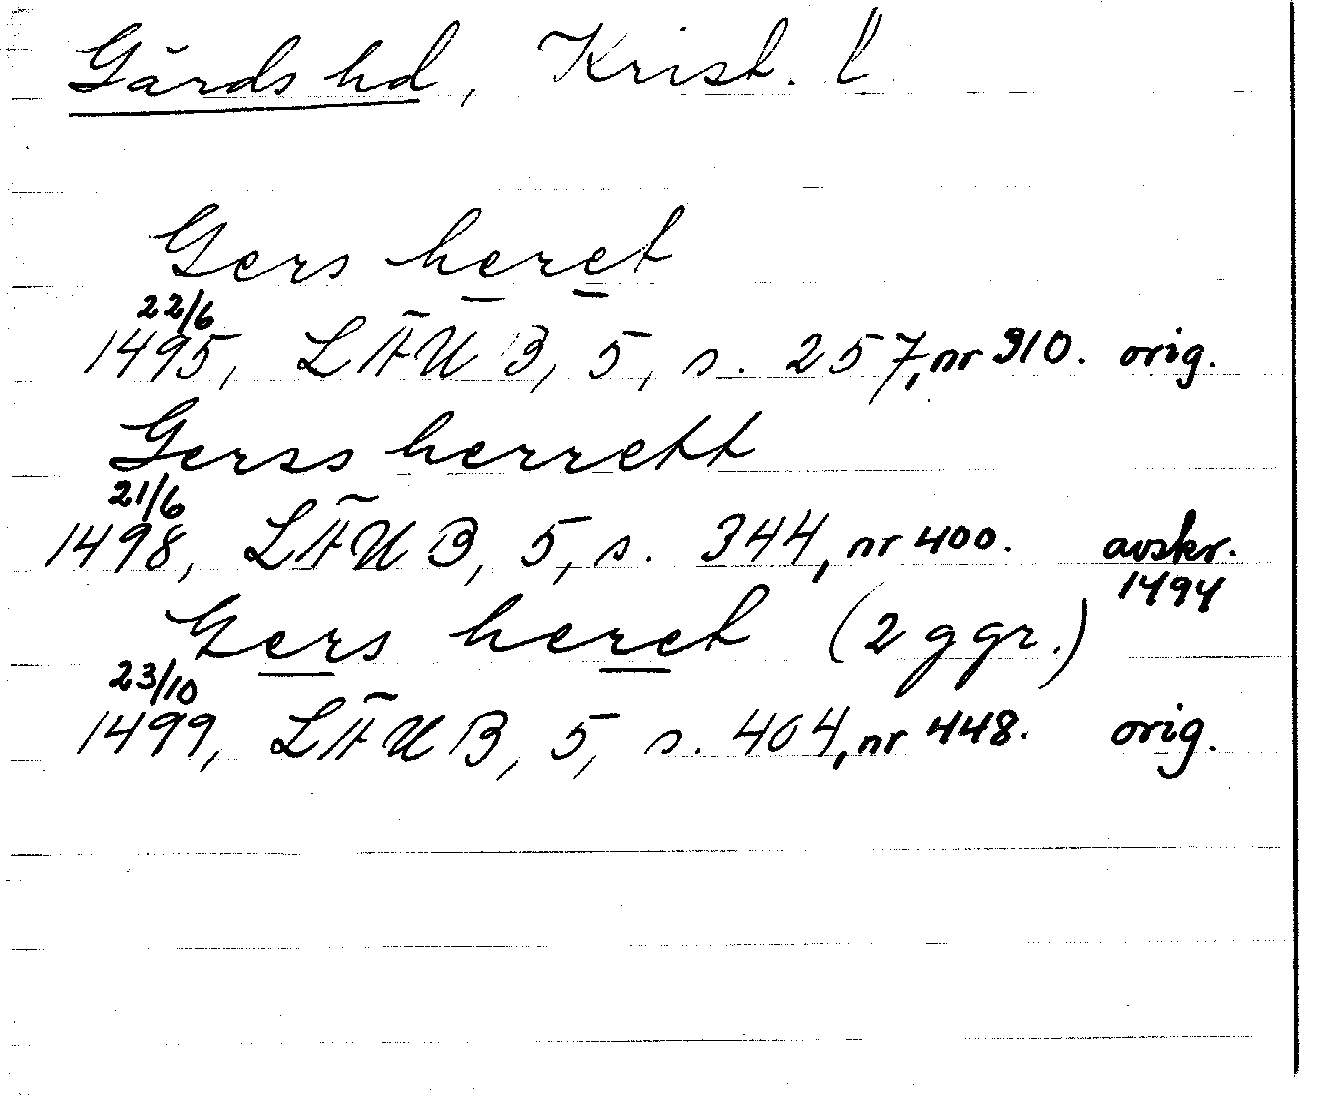 Gärds hd, Krist. l.
Gers heret
22/6
1495, LÄUB, 5, s. 257, nr 310. orig.
Gerss herrett
21/6
1498, LÄUB, 5, s. 344, nr 400. avskr.
1494
Gers heret (2 ggr.)
23/10
1499, LÄUB, 5, s. 404, nr 448. orig.